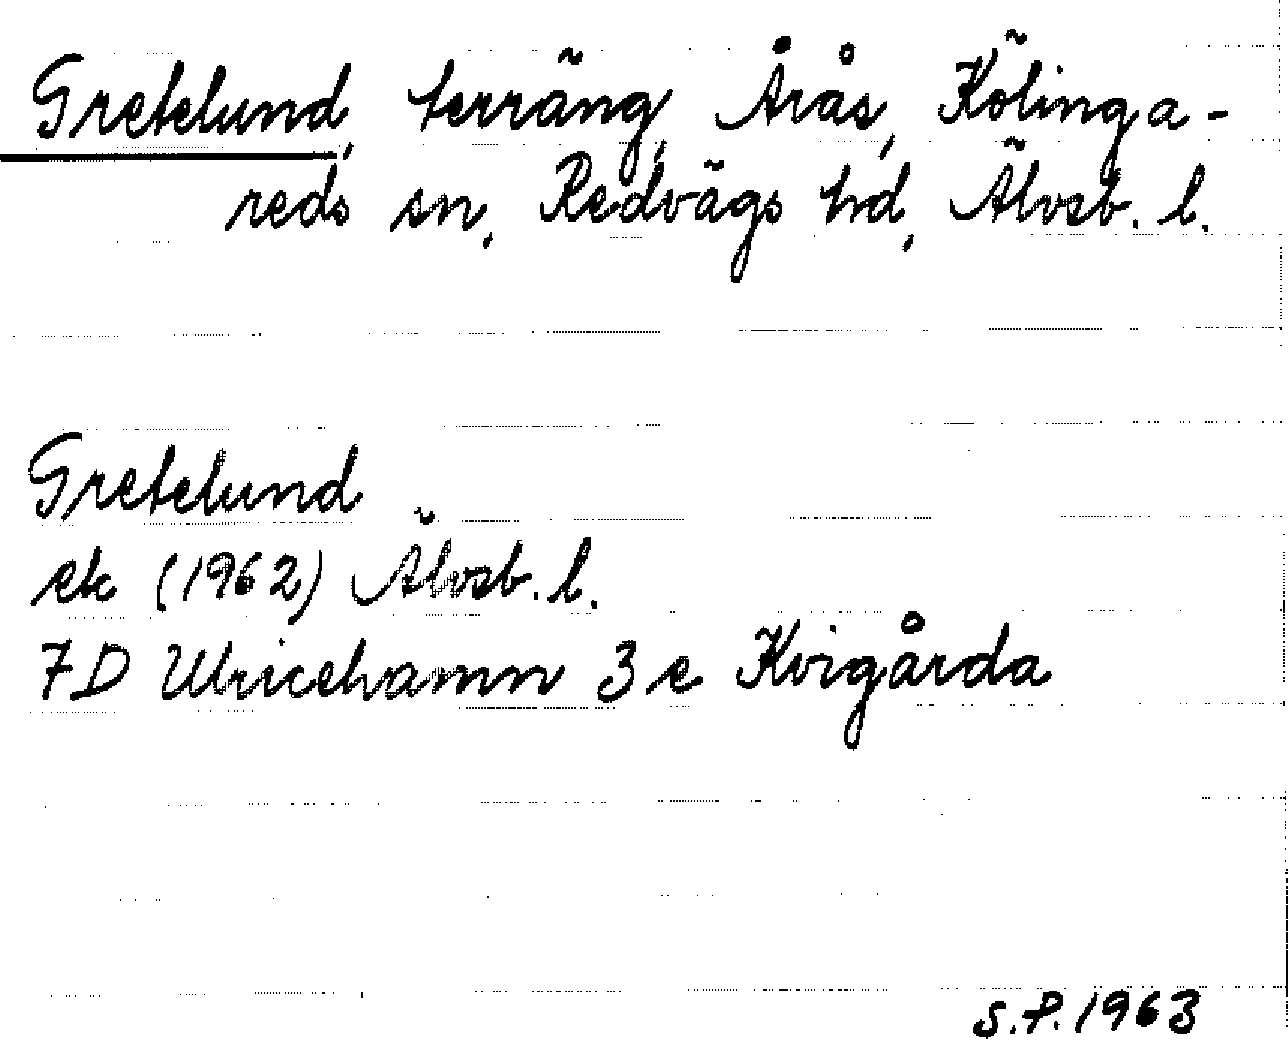 Gretelund, terräng, Årås, Kölinga-
reds sn, Redvägs hd, Älvsb. l.
Gretelund
ek (1962) Älvsb. l.
7D Ulricehamn 3e Kvigårda
S.P. 1963